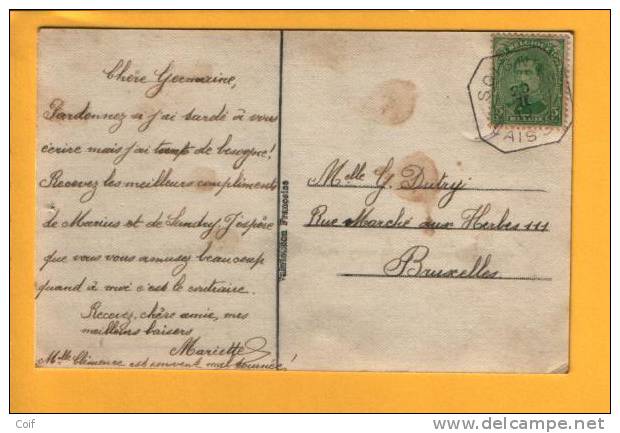 Chère Germaine,
Pardonnez si j'ai tardé à vous
écrire mais j'ai tant de besogne!
Recevez les meilleurs compliments
de Marius et de Sandry. J'espère
que vous vous amusez beaucoup
quand à moi c'est le contraire.
Recevez, chère amie, mes
meilleurs baisers
Mariette
Mlle Clémence est souvent mal tournée!
Fabrication Française
BELGIQUE
5 5
BELGIË
AIS
Melle G. Dutry
Rue Marché aux Herbes 111
Bruxelles
Coif
www.delcampe.net